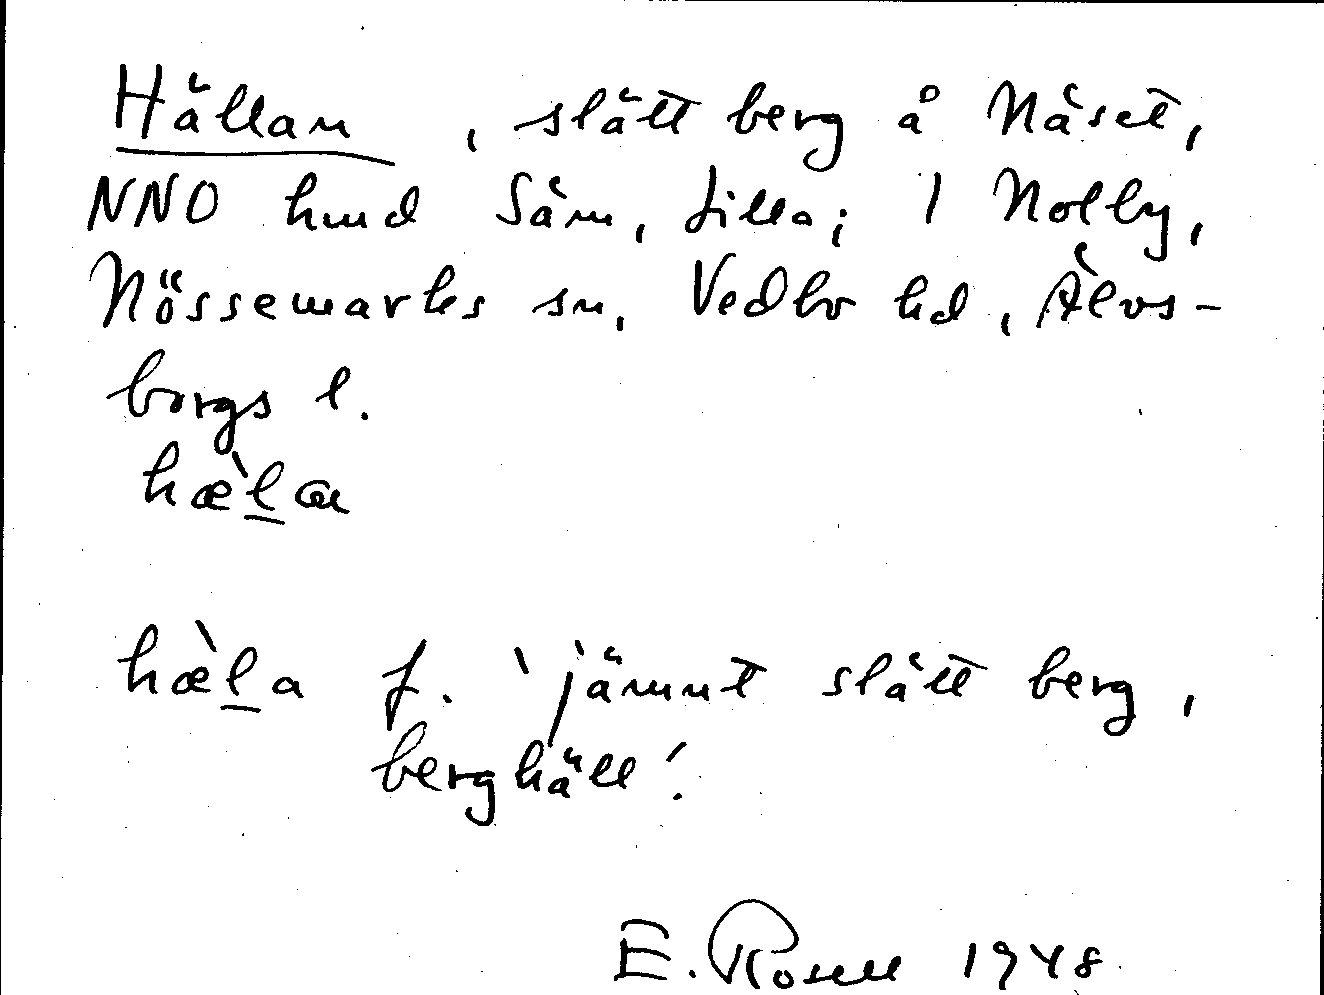 Hällan, slätt berg å Näset,
NNO hmd Säm, Lilla; 1 Nolby,
Nössemarks sn, Vedbo hd, Älvs-
borgs l.
hæ̀l̲ɑ

hæ̀l̲a f. 'jämnt slätt berg,
berghäll'.
E. Rosell 1948